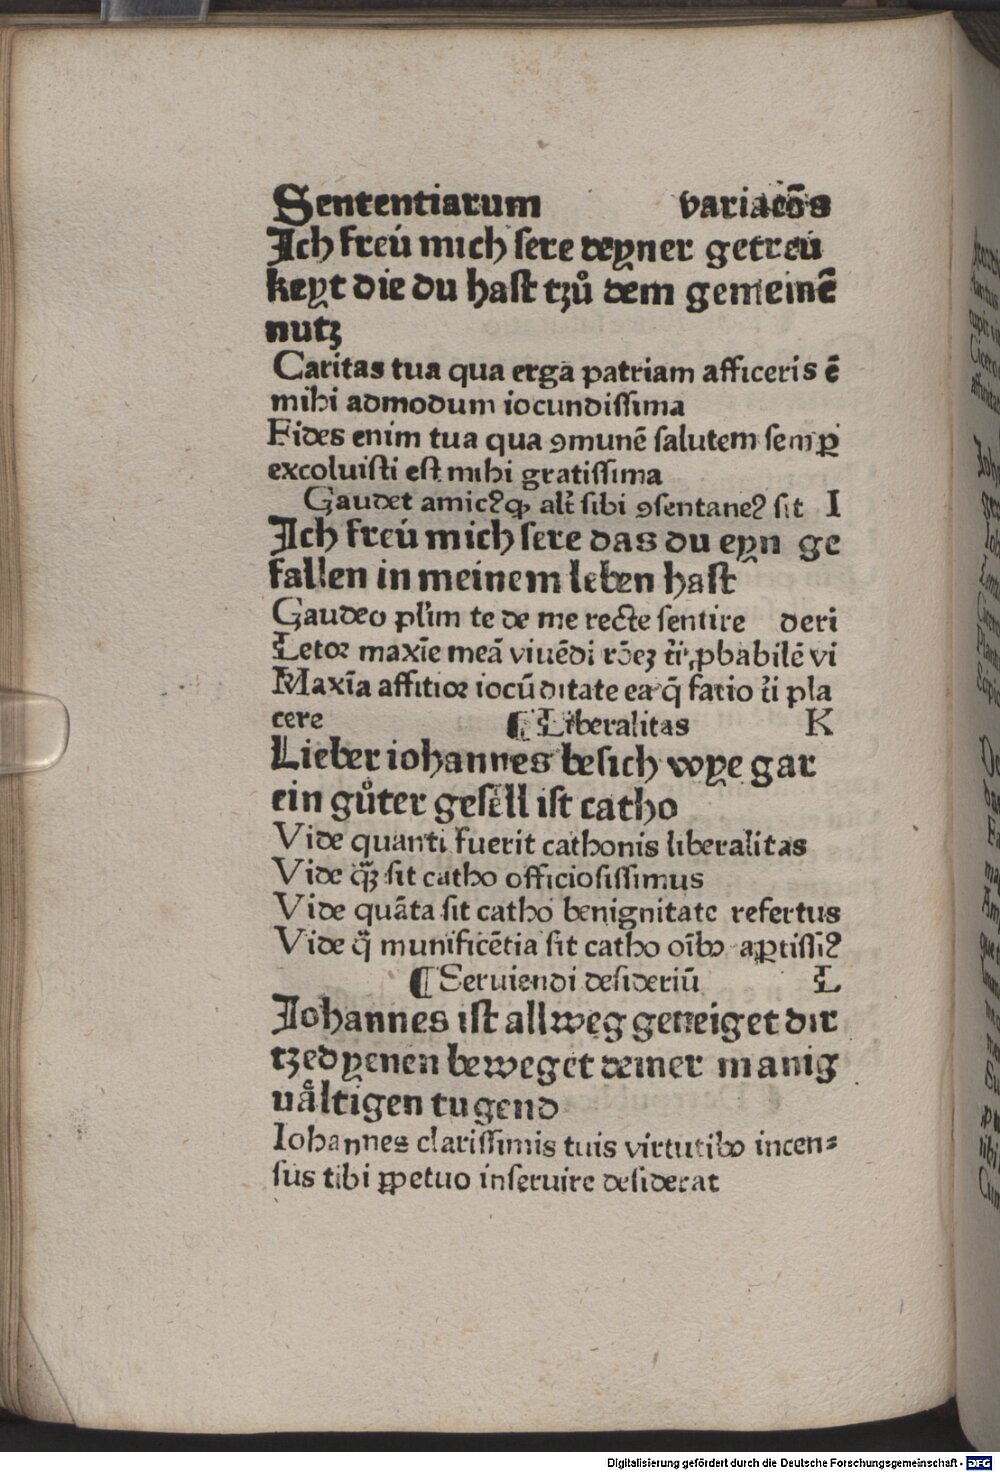 Sententiarum variacōs
Ich freú mich sere deyner getreú
keyt die du hast tzů dem gemeinē
nutz
Caritas tua qua erga patriam afficeris ē
mihi admodum iocundissima
Fides enim tua qua ꝯmunē salutem semꝑ
excoluisti est mihi gratissima
Gaudet amicꝰqꝫ alt̃ sibi ꝯsentaneꝰ sit I
Ich freú mich sere das du eyn ge
fallen in meinem leben hast
Gaudeo pl'im te de me recte sentire deri
Letoꝛ maxīe meā viuēdi rōeꝫ t'i ꝓbabilē vi
Maxīa affitioꝛ iocūditate ea q̄ facio t'i pla
cere ¶ Liberalitas K
Lieber iohannes besich wye gar
ein gůter gesell ist catho
Vide quanti fuerit cathonis liberalitas
Vide qꝫ̃ sit catho officiosissimus
Vide quāta sit catho benignitate refertus
Vide q̃ munificētia sit catho oībꝰ aꝑtissiꝰ
¶ Seruiendi desideriū L
Iohannes ist allweg geneiget dir
tzedyenen beweget deiner manig
uåltigen tugend
Iohannes clarissimis tuis virtutibꝰ incen⸗
sus tibi ꝑpetuo inseruire desiderat
Digitalisierung gefördert durch die Deutsche Forschungsgemeinschaft - DFG